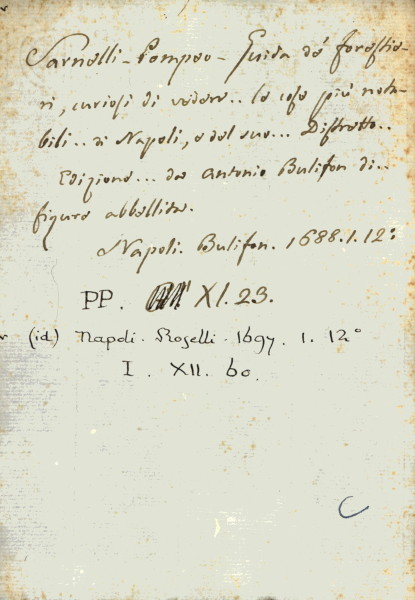 Sarnelli - Pompeo - Guida de' forestie-
ri, curiosi di vedere.. le cose più nota-
bili.. di Napoli, e del suo... Distretto..
Edizione... da Antonio Bulifon di..
figure abbellita.
Napoli. Bulifon. 1688. 1. 12:
PP. XI. 23.
(id) Napoli. Roselli. 1697. 1. 12°
I. XII. 60.